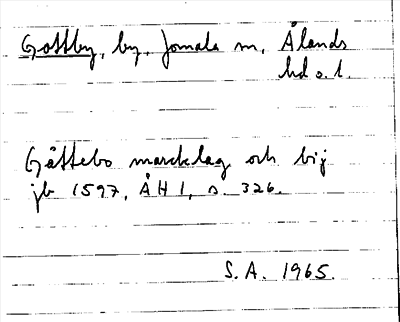 Gottby, by, Jomala sn, Ålands
hd o. l.
Gåttebo marcklag och bij
jb 1597, ÅH 1, s. 326.
S.A. 1965.